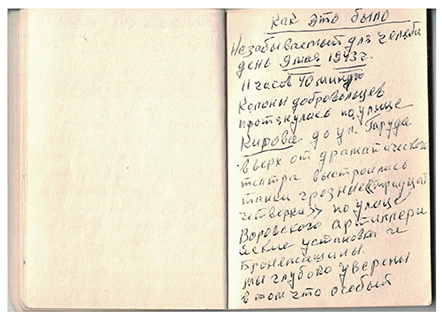 Как это было
Незабываемый для
день 9 мая 1943 г.
11 часов 40 минут
Колоны добровольцев
протянулась по улице
Кирова до ул. Труда
вверх от драматического
театра выстроились
танки грозные тридцат
четверки>> по улице
Воровского артиллери
йские установка и
Бронемашины.
мы глубоко уверены
в том что особый